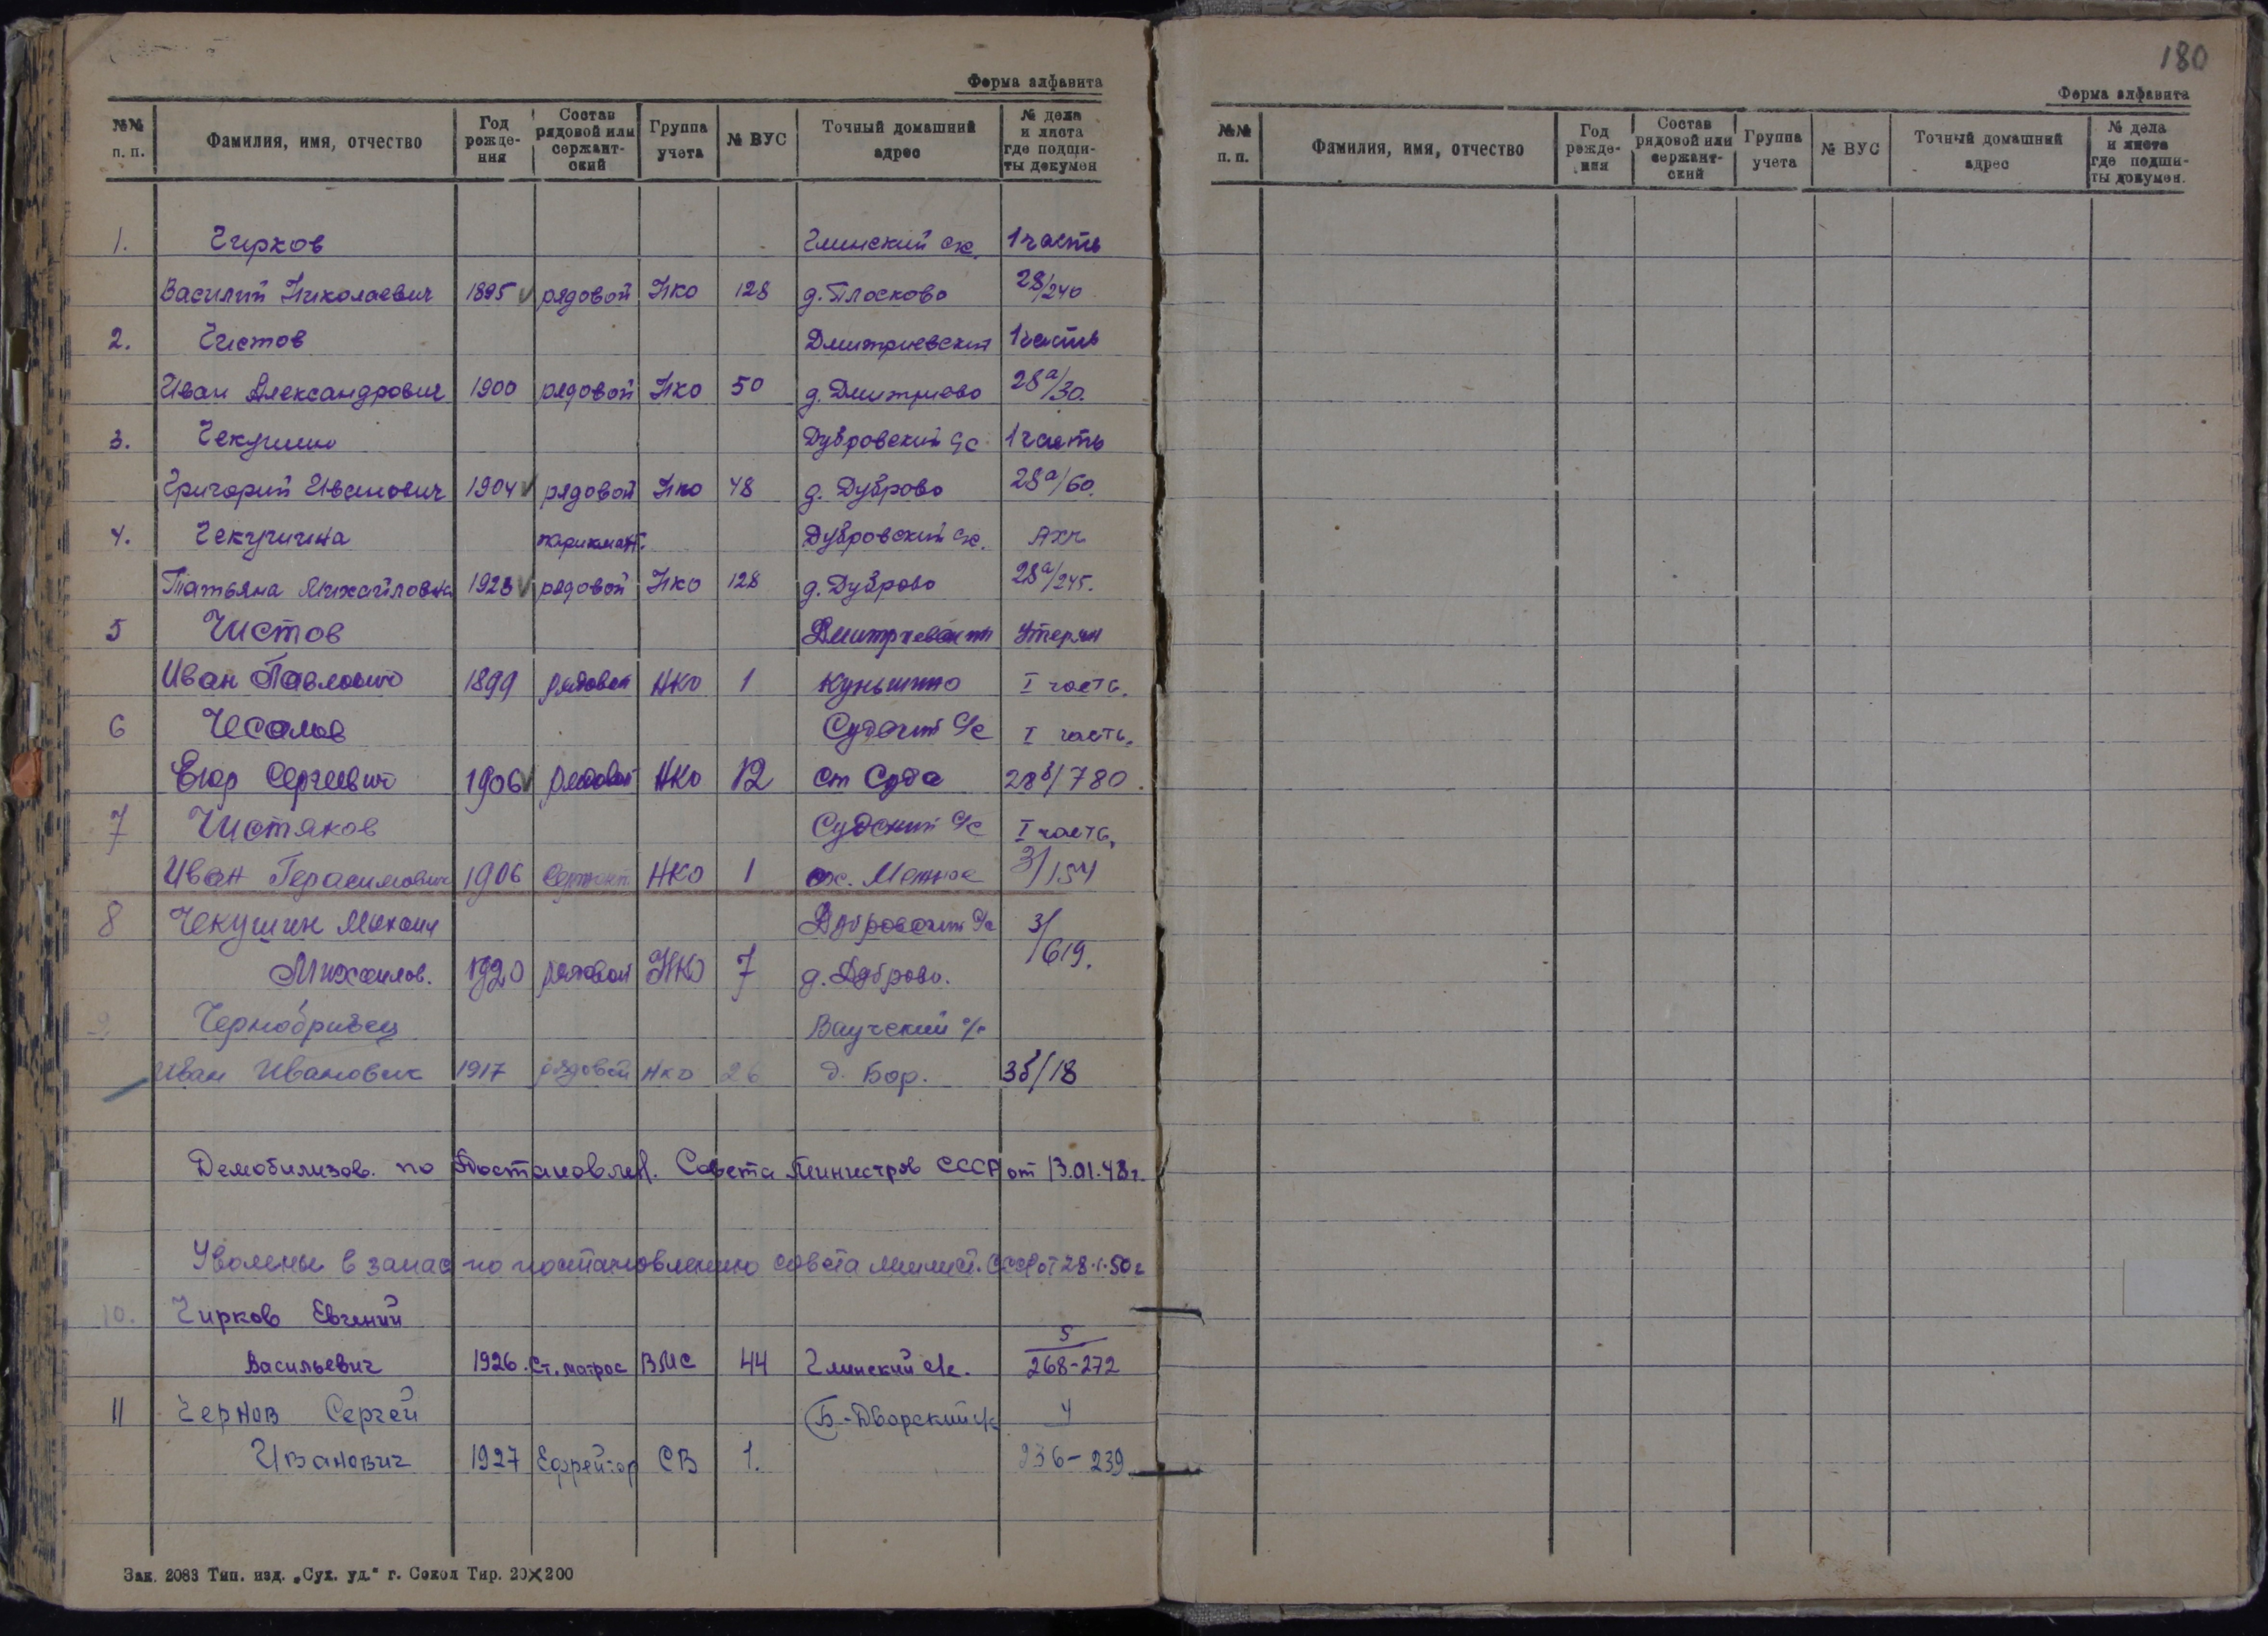 Форма алфавита
№№ п. п. Фамилия, имя, отчество Год рожде-ния Состав рядовой или сержант-ский Группа учета № ВУС Точный домашний адрес № дела и листа где подши-ты докумен
1. Чирков Глинский с/с. 1 часть
Василий Николаевич 1895 рядовой НКО 128 д. Плосково 28/240
2. Чистов Дмитриевский 1 часть
Иван Александрович 1900 рядовой НКО 50 д. Дмитриево 28а/30.
3. Чекушин Дубровский с/с 1 часть
Григорий Иванович 1904 рядовой НКО 48 д. Дуброво 28а/60.
4. Чекушина парикмах. Дубровский с/с. АХЧ
Татьяна Михайловна 1923 рядовой НКО 128 д. Дуброво 28а/245.
5 Чистов Дмитриевский Утерян
Иван Павлович 1899 рядовой НКО 1 I часть.
6 Судский с/с I часть.
Егор Сергеевич 1906 рядовой НКО 12 ст Суда 28б/780.
7 Чистяков Судский с/с I часть,
Иван Герасимович 1906 Сержант. НКО 1 3/154
8 Чекушин Михаил Дубровский с/с 3/
Михайлов. 1920 рядовой НКО 7 д. Дуброво. 619.
9 Чернобривец Ваучский с/с
Иван Иванович 1917 рядовой НКО 26 д. Бор. 3б/18
Демобилизов. по Постановлен. Совета Министров СССР от 13.01.48г.
Уволены в запас по постановлению совета минист. СССР от 28.1.50г
10. Чирков Евгений
Васильевич 1926. Ст. матрос ВМС 44 Глинский с/с. 5/268-272
11 Чернов Сергей Б.-Дворский с/с 4
Иванович 1927 Ефрейтор СВ 1. 236-239
Зак. 2083 Тип. изд. „Сух. уд.“ г. Сокол Тир. 20×200
180
Форма алфавита
№№ п. п. Фамилия, имя, отчество Год рожде-ния Состав рядовой или сержант-ский Группа учета № ВУС Точный домашний адрес № дела и листа где подши-ты докумен.